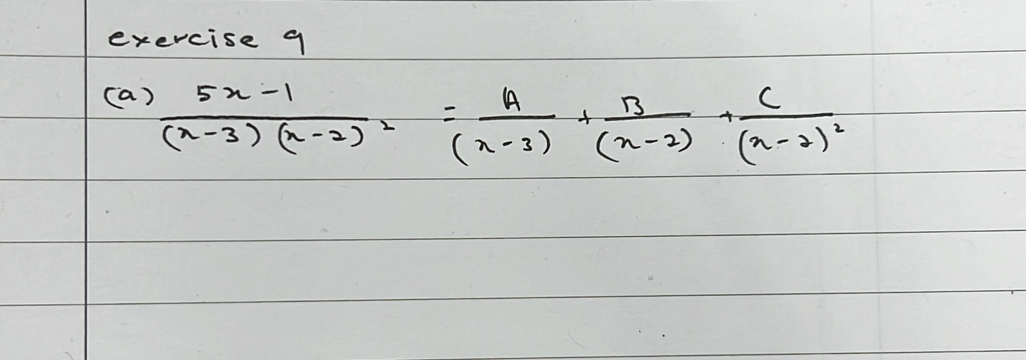 exercise 9
(a) 5x-1 / (x-3)(x-2)² = A / (x-3) + B / (x-2) + C / (x-2)²